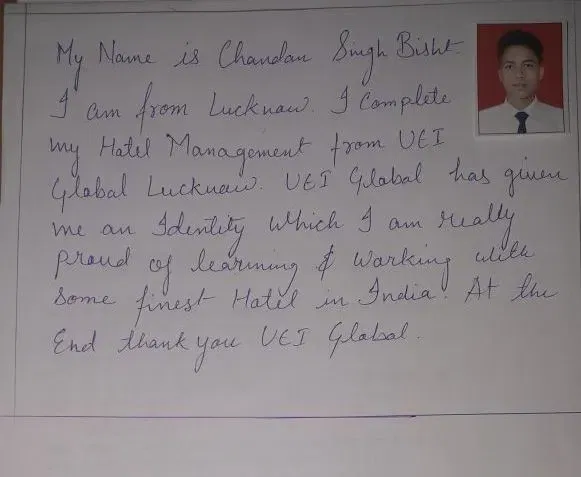 My Name is Chandan Singh Bisht.
I am from Lucknow. I Complete
my Hotel Management from UEI
Global Lucknow. UEI Global has given
me an Identity Which I am really
proud of learning & Working with
Some finest Hotel in India. At the
End thank you UEI Global.